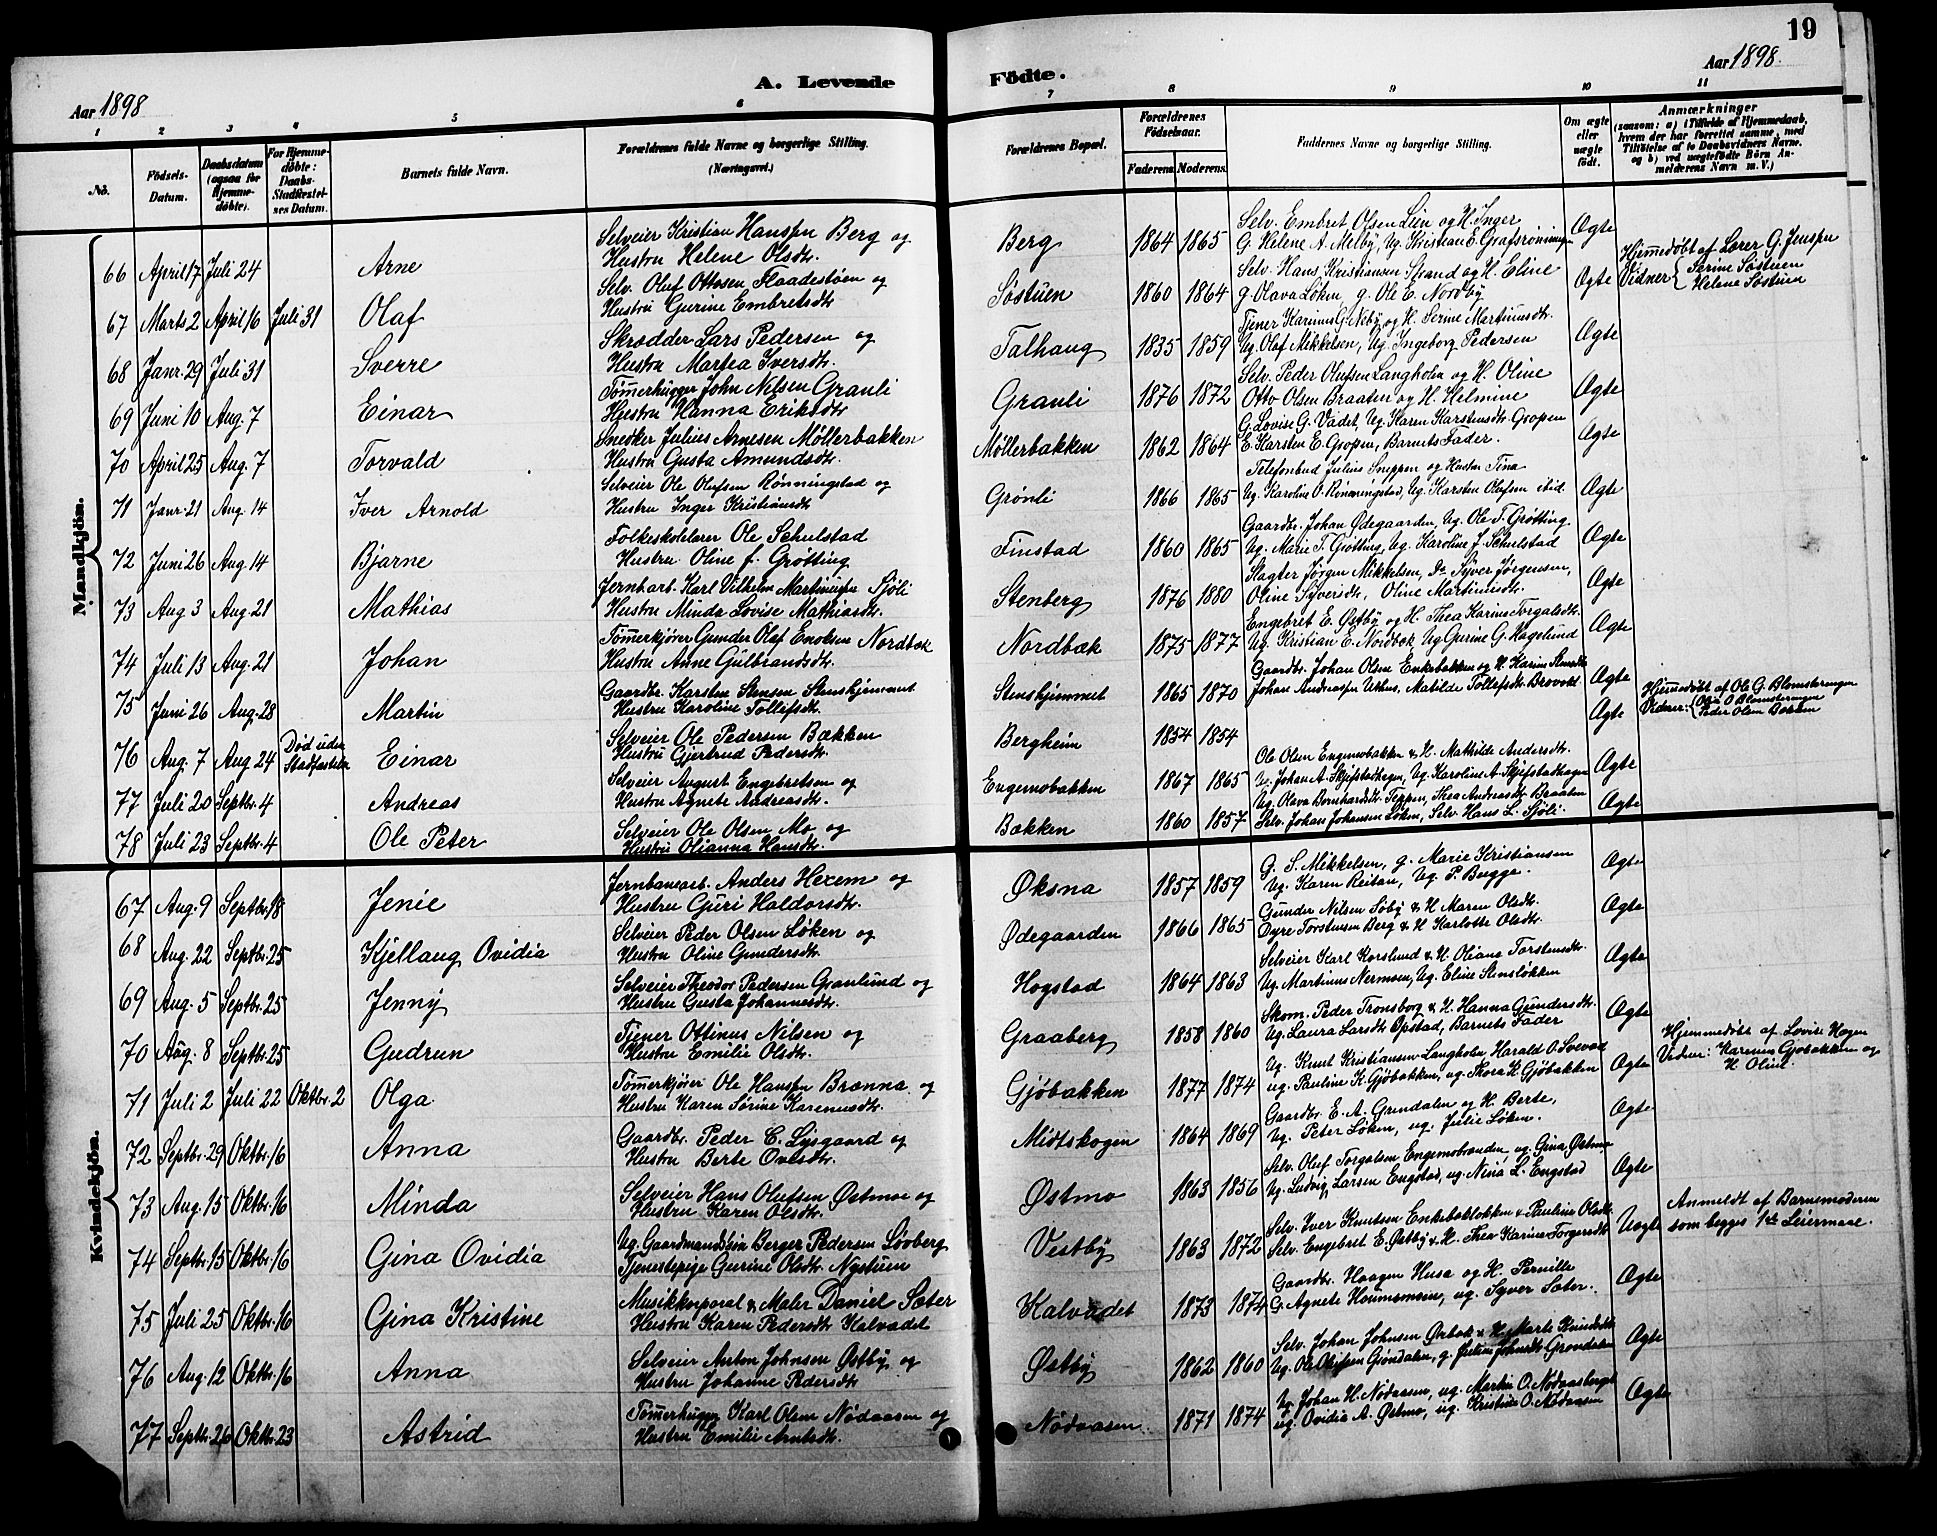 19
Aar 1898
A. Levende
Födte.
Aar 1898.
1 2 3 4 5 6 7 8 9 10 11
No.
Födsels-Datum.
Daabsdatum (ogsaa for Hjemmedöbte).
For Hjemmedöbte: Daabs-Stadfæstelses Datum.
Barnets fulde Navn.
Forældrenes fulde Navne og borgerlige Stilling. (Næringsvei.)
Forældrenes Bopæl.
Forældrenes Födselsaar.
Faderens. Moderens.
Faddernes Navne og borgerlige Stilling.
Om ægte eller uægte födt.
Anmærkninger
(saasom: a) i Tilfælde af Hjemmedaab, hvem der har forrettet samme, med Tilföielse af to Daabsvidners Navne. og b) ved uægtefödte Börn Anmelderens Navn m. V.)
Mandkjön.
66 April 17 Juli 24 Arne
Selveier Kristian Hansen Berg og
Hustru Helene Olsdtr.
Berg 1864 1865
Selv. Embret Olsen Lien og H. Inger
G. Helene A. Melby, Ug. Kristian E. Grafsrøningen
Ægte
67 Marts 2 April 16 Juli 31 Olaf
Selv. Oluf Ottosen Flaadestøen og
Hustru Gurine Embretsdtr
Søstuen 1860 1864
Selv. Hans Kristiansen Strand og H. Eline
g. Olava Løken, g. Ole E. Nordby
Ægte
Hjemmedøbt af Lærer G. Jensen
Vidner Serine Søstuen
Helene Søstuen
68 Janr. 29 Juli 31 Sverre
Skrædder Lars Pedersen og
Hustru Martea Iversdtr.
Talhaug 1835 1859
Tjener Karinus G. Neby og H. Serine Martinusdtr.
Ug. Olaf Mikkelsen, Ug. Ingeborg Pedersen
Ægte
69 Juni 10 Aug. 7 Einar
Tømmerhugger John Nilsen Grauli
Hustru Hanna Eriksdtr
Grauli 1876 1872
Selv. Peder Olufsen Langholen og H. Oline
Otto Olsen Braaten og H. Helmine
Ægte
70 April 25 Aug. 7 Torvald
Snedker Julius Arnesen Møllerbakken
Hustru Gusta Amundsdtr.
Møllerbakken 1862 1864
G. Lovise G. Vadet, Ug. Karen Karstensdtr. Gropen
E. Karsten E. Gropen, Barnets Fader.
Ægte
71 Janr. 21 Aug. 14 Iver Arnold
Selveier Ole Olufsen Rønningstad og
Hustru Inger Kristiansdtr
Grønli 1866 1865
Telefonbud Julius Sneppen og Hustru Tina
Ug. Karoline O. Rønningstad, Ug. Karsten Olufsen ibid.
Ægte
72 Juni 26 Aug. 14 Bjarne
Folkeskolelærer Ole Schulstad
Hustru Oline f. Grøtting
Finstad 1860 1865
Gaardbr. Johan Ødegaarden, Ug. Ole T. Grøtting
Ug. Marie T. Grøtting, Ug. Karoline J. Schulstad
Ægte
73 Aug 3 Aug. 21 Mathias
Jernbarb. Karl Vilhelm Martinusen Sjøli
Hustru Minda Lovise Mathiasdtr.
Stenberg 1876 1880
Slagter Jørgen Mikkelsen, Syver Jørgensen,
Oline Syversdtr, Oline Martinusdtr.
Ægte
74 Juli 13 Aug. 21 Johan
Tømmerkjører Gunder Olaf Enoksen Nordbæk
Hustru Anne Gulbrandsdtr.
Nordbæk 1875 1877
Engebret E. Østby og H. Thea Karine Torgalsdtr.
Ug. Kristian E. Nordbæk Ug Gurine G. Hagelund
Ægte
75 Juni 26 Aug. 28 Martin
Gaardbr. Karsten Stensen Stenshjemmet
Hustru Karoline Tollefsdtr.
Stenshjemmet 1865 1870
Gaardbr. Johan Olsen Enkebakken og H. Karine Stensdtr
Johan Andreassen Uthus, Matilde Tollefsdtr. Brovold
Ægte
76 Aug. 7 Aug 24 Død uden Stadfæstelse Einar
Selveier Ole Pedersen Bækken
Hustru Gjertrud Pedersdtr.
Bergheim 1854 1854
Ægte
Hjemmedøbt af Ole G. Blomsterengen
Vidner: Olia O Blomsterengen
Peder Olsen Bakken
77 Juli 20 Septbr. 4 Andreas
Selveier August Engebretsen og
Hustru Agnete Andreasdtr.
Engemobakken 1867 1865
Ole Olsen Engemobakken & H. Mathilde Andersdtr.
Ug. Johan A. Skjefstadhagen, Ug. Karoline A. Skjefstadhagen
Ægte
78 Juli 23 Septbr. 4 Ole Peter
Selveier Ole Olsen Mo og
Hustru Olianna Hansdtr.
Bækken 1860 1857
Ug. Olava Bernhardsdtr. Teppen, Thea Andreasdtr Braaten
Selv. Johan Johansen Løken, Selv. Hans L. Sjøli
Ægte
Kvindekjön.
67 Aug. 9 Septbr. 18 Jenie
Jernbanearb. Anders Hexem og
Hustru Guri Haldorsdtr.
Øksna 1857 1859
G. S. Mikkelsen, g. Marie Kristiansen
Ug. Karen Reitan, Ug. P. Bugge.
Ægte
68 Aug. 22 Septbr. 25 Kjellaug Ovidia
Selveier Peder Olsen Løken og
Hustru Oline Gundersdtr.
Ødegaarden 1866 1865
Gunder Nilsen Søby & H. Maren Olsdtr.
Dyre Torstensen Berg & H. Karlotte Olsdtr.
Ægte
69 Aug. 5 Septbr. 25 Jenny
Selveier Theodor Pedersen Granlund og
Hustru Gusta Johannesdtr.
Hogstad 1864 1863
Selveier Karl Korslund & H. Oliana Torstensdtr.
Ug. Martinus Nermoen, Ug. Eline Stensløkken
Ægte
70 Aug. 8 Septbr. 25 Gudrun
Tjener Ottinus Nilsen og
Hustru Emilie Olsdtr.
Graaberg 1858 1860
Skom. Peder Tronsborg & H. Hanna Gundersdtr.
Ug. Laura Larsdtr Opstad, Barnets Fader
Ægte
71 Juli 2 Juli 22 Oktbr. 2 Olga
Tømmerkjører Ole Hansen Brænna og
Hustru Karen Sørine Karenusdtr
Gjøbakken 1877 1874
Ug. Knut Kristiansen Langholen Harald O. Svevad
ug. Pauline K. Gjøbakken, ug. Thora K. Gjøbakken
Ægte
Hjemmedøbt af Lovise Hagen
Vidner: Karenus Gjøbakken og
H. Oline.
72 Septbr. 29 Oktbr. 16 Anna
Gaardbr. Peder C. Lysgaard og
Hustru Berte Ovesdtr.
Midtskogen 1864 1869
Gaardbr. E. A. Grundalen og H. Berte,
Ug. Peter Løken, ug. Julie Løken.
Ægte
73 Aug. 15 Oktbr. 16 Minda
Selveier Hans Olufsen Østmoe og
Hustru Karen Olsdtr.
Østmo 1863 1856
Selv. Oluf Torgalsen Engemobraenden, ug. Gina Østmo
Ug. Ludvig Larsen Engstad, ug. Nina L. Engstad
Ægte
74 Septbr. 15 Oktbr. 16 Gina Ovidia
Ug. Gaardmandssøn Berger Pedersen Løvberg
Tjenestepige Gurine Olsdtr. Nystuen
Vestby 1863 1872
Selv. Iver Knutsen Enkebakløkken & Pauline Olsdtr.
Selv. Engebret E. Østby & H. Thea Karine Torgersdtr.
Uægte
Anmeldt af Barnemoderen
som begges 1ste Leiermaal.
75 Juli 25 Oktbr. 16 Gina Kristine
Musikkorporal & Maler Daniel Sæter
Hustru Karen Pedersdtr Kalvadet
Kalvadet 1873 1874
Gaardbr. Haagen Husa og H. Pernille
G. Agnete Hommemoen, ug. Syver Sæter.
Ægte
76 Aug. 12 Oktbr. 16 Anna
Selveier Anton Johnsen Østby og
Hustru Johanne Pedersdtr
Østby 1862 1860
Selv. Johan Johnsen Ørbæk & H. Marte Knudsdtr
Ug. Ole Olufsen Grøndalen, g. Julia Johnsdtr Grøndalen
Ægte
77 Septbr. 26 Oktbr. 23 Astrid
Tømmerhugger Karl Olsen Nødaasen og
Hustru Emilie Arntsdtr.
Nødaasen 1871 1874
Ug. Johan H. Nødaasen, ug. Martin O. Nødaasberget
ug. Ovidia A. Østmo, ug. Kristine O. Nødaasen
Ægte